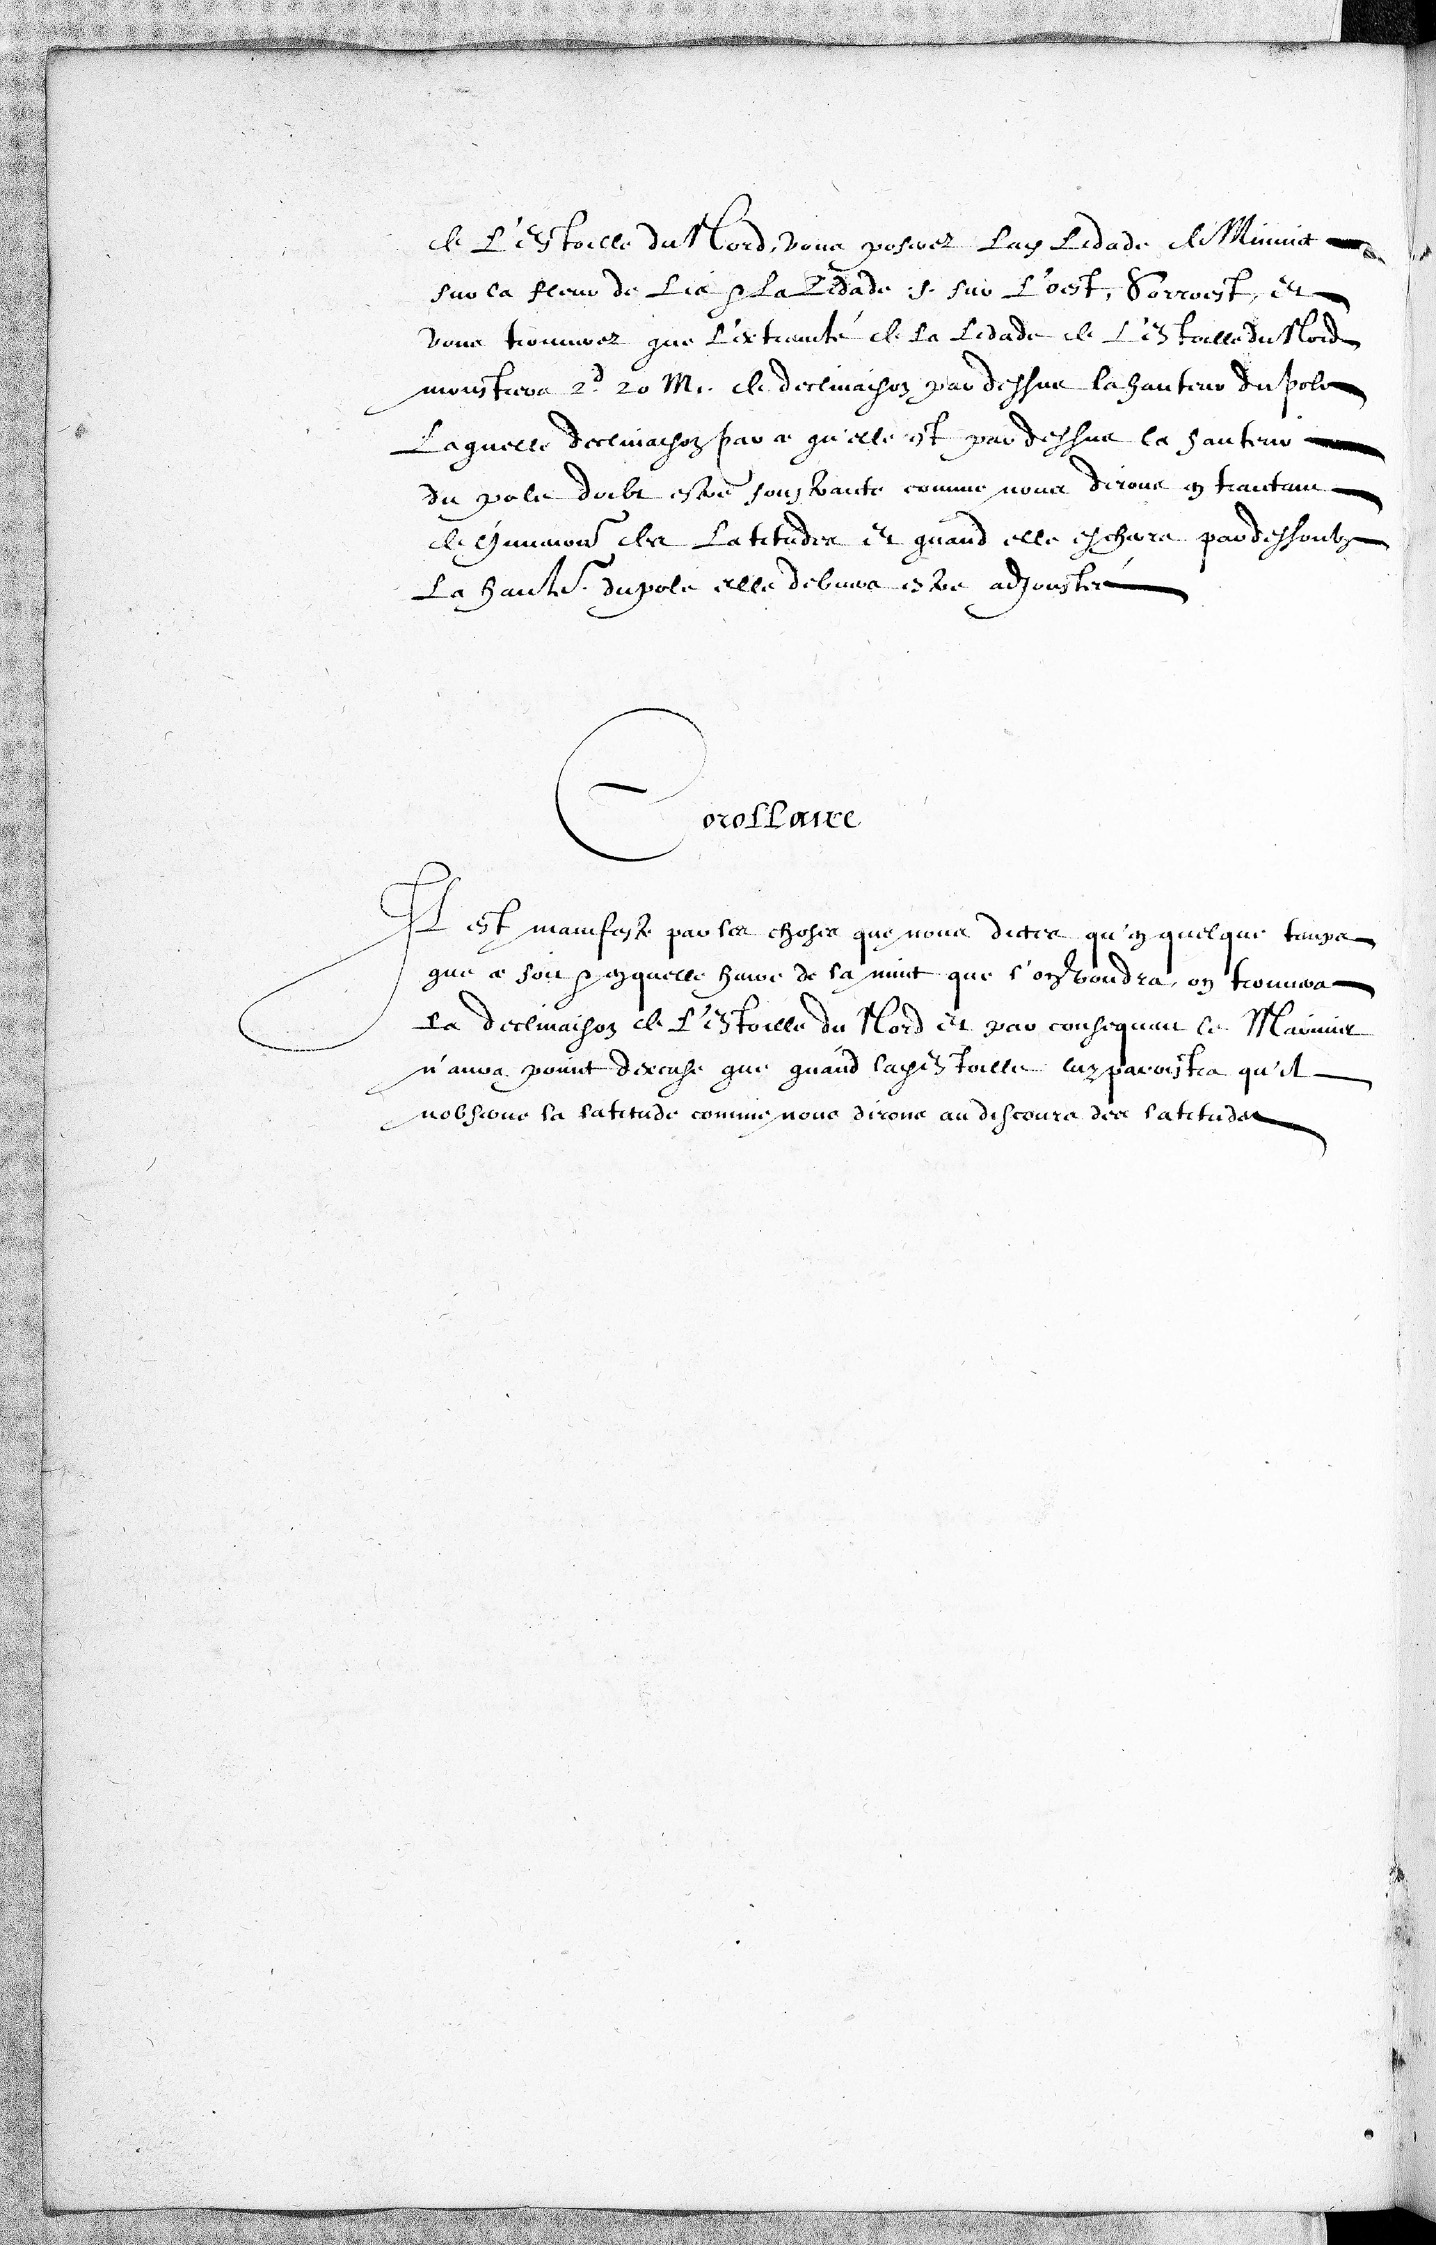 de L'estoille du Nord, vous poserez Lad Lidade de Minuit
sur la fleur de Lis & La Lidade .S. sur L'oest, Sorroest, et
vous trouuerez que L'extremité de La Lidade de L'estoille du Nord
monstrera 2.d 20 M. de declinaison par dessus la hauteur du pole
Laquelle declinaison par ce qu'elle est par dessus la hauteur
du pole doibt estre soustraite comme nous dirons en traitant
des Latitudes et quand elle eschera par dessoubz
La haulteur du pole elle debuera estre adjoustée
Corollaire
Il est manifeste par les choses que nous dictes qu'en quelque temps
que ce soit & en quelle heure de la nuit que l'on voudra, on trouuera
La declinaison de L'estoille du Nord et par consequent le Marinier
n'aura point dexcuse que quand lad estoille luy paroistra qu'il
nobserue la latitude comme nous dirons au discours des latitudes